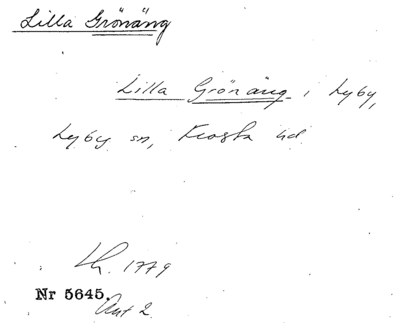 Lilla Grönäng
Lilla Grönäng i Lyby,
Lyby sn, Frosta hd
Lh. 1779
Nr 5645.
Akt 2.